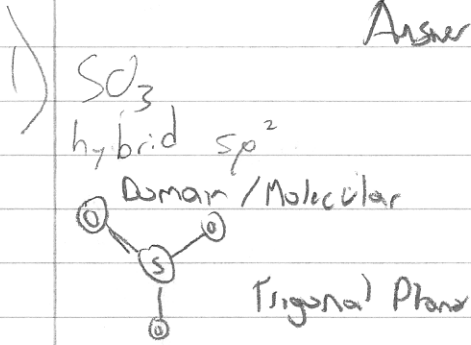 Answer
1) SO₃
hybrid sp²
Domain / Molecular
O O
S
Trigonal Planar
O